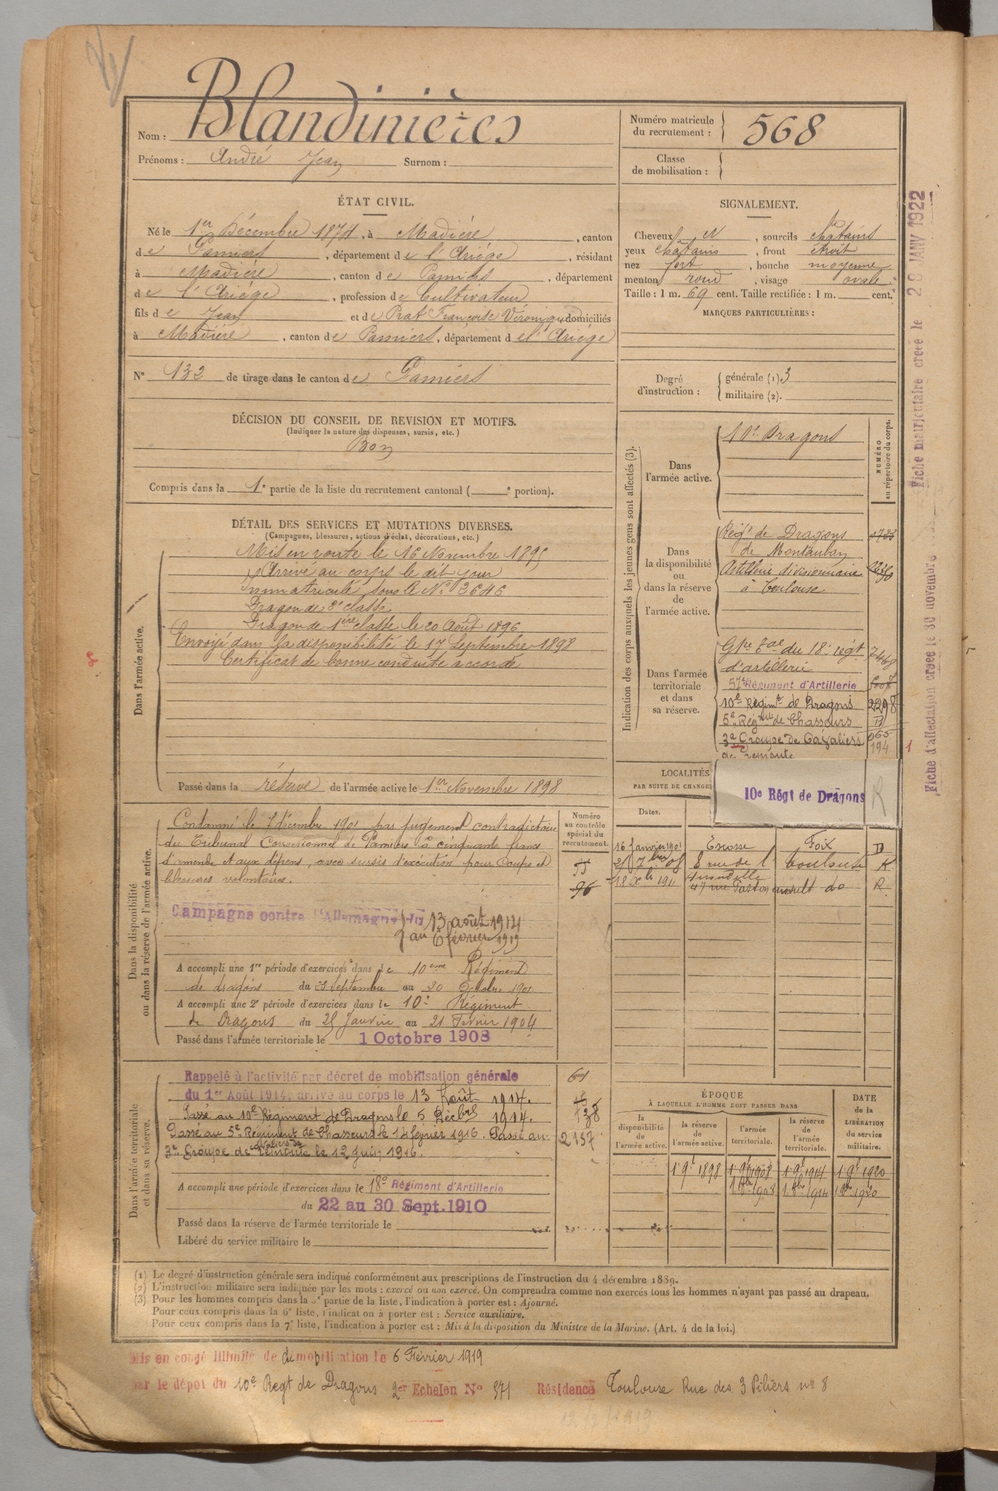 Nom : Blandinières
Prénoms : André Jean Surnom :
Numéro matricule du recrutement : 568
Classe de mobilisation :
ÉTAT CIVIL.
Né le 1er Décembre 1874, à Madière, canton
de Pamiers, département de l'Ariège, résidant
à Madière, canton de Pamiers, département
de l'Ariège, profession de Cultivateur
fils de Jean et de Prat Françoise Véronique domiciliés
à Madière, canton de Pamiers, département de l'Ariège
N° 132 de tirage dans le canton de Pamiers
SIGNALEMENT.
Cheveux et, sourcils châtains
yeux châtains, front étroit
nez fort, bouche moyenne
menton rond, visage ovale
Taille : 1 m. 69 cent. Taille rectifiée : 1 m. cent.
MARQUES PARTICULIÈRES :
Degré d'instruction : générale (1) 3
militaire (2).
DÉCISION DU CONSEIL DE REVISION ET MOTIFS.
(Indiquer la nature des dispenses, sursis, etc.)
Bon
Compris dans la 1e partie de la liste du recrutement cantonal ( e portion).
DÉTAIL DES SERVICES ET MUTATIONS DIVERSES.
(Campagnes, blessures, actions d'éclat, décorations, etc.)
Dans l'armée active.
Mis en route le 16 Novembre 1895
Arrivé au corps le dit jour
Immatriculé sous le N° 3646
Dragon de 2e classe
Dragon de 1ère classe le 20 Août 1896
Envoyé dans la disponibilité le 17 Septembre 1898
Certificat de bonne conduite accordé
Passé dans la réserve de l'armée active le 1er Novembre 1898
Indication des corps auxquels les jeunes gens sont affectés (3).
NUMÉRO au répertoire du corps.
Dans l'armée active.
10e Dragons
Dans la disponibilité ou dans la réserve de l'armée active.
Régt de Dragons
de Montauban
Artillerie divisionnaire
à Toulouse
Dans l'armée territoriale et dans sa réserve.
Gpe Tal du 18e régt
d'artillerie
57e Régiment d'Artillerie
10e Régimt de Dragons 2298
5e Régt de Chasseurs
3e Groupe de Cavaliers
de remonte
10e Régt de Dragons R
LOCALITÉS
PAR SUITE DE CHANGE
Dates.
16 Janvier 1901 Foix D
8 rue de Toulouse R
18 Xbre 191 47 rue do R
Numéro au contrôle spécial du recrutement.
Dans la disponibilité ou dans la réserve de l'armée active.
Condamné le décembre 1901 par jugement contradictoire
du Tribunal Correctionnel de Pamiers à cinquante francs
d'amende et aux dépens, avec sursis d'exécution pour Coups et
blessures volontaires.
Campagne contre l'Allemagne du 13 août 1914
au 6 février 1919
A accompli une 1re période d'exercices dans le 10ème Régiment
de dragons du Septembre au Octobre 1901
A accompli une 2e période d'exercices dans le 10e Régiment
de Dragons du 25 Janvier au 21 Février 1904
Passé dans l'armée territoriale le 1 Octobre 1908
Dans l'armée territoriale et dans sa réserve.
Rappelé à l'activité par décret de mobilisation générale
du 1er Août 1914, arrivé au corps le 13 Août 1914.
Passé au 10e Régiment de Dragons le 5 Décbre 1914.
Passé au 5e Régiment de Chasseurs le 14 février 1916. Passé au
3e Groupe de cavaliers de remonte le 12 juin 1916.
A accompli une période d'exercices dans le 18e Régiment d'Artillerie
du 22 au 30 Sept. 1910
Passé dans la réserve de l'armée territoriale le
Libéré du service militaire le
61
138
2137
ÉPOQUE
À LAQUELLE L'HOMME DOIT PASSER DANS
la disponibilité de l'armée active.
la réserve de l'armée active.
l'armée territoriale.
la réserve de l'armée territoriale.
DATE de la LIBÉRATION du service militaire.
1 9bre 1898 1 9bre 1908 1 9bre 1914 1 9bre 1920
1 8bre 1908 1 8bre 1914 1 8bre 1920
(1) Le degré d'instruction générale sera indiqué conformément aux prescriptions de l'instruction du 4 décembre 1889.
(2) L'instruction militaire sera indiquée par les mots : exercé ou non exercé. On comprendra comme non exercés tous les hommes n'ayant pas passé au drapeau.
(3) Pour les hommes compris dans la 5e partie de la liste, l'indication à porter est : Ajourné.
Pour ceux compris dans la 6e liste, l'indication à porter est : Service auxiliaire.
Pour ceux compris dans la 7e liste, l'indication à porter est : Mis à la disposition du Ministre de la Marine. (Art. 4 de la loi.)
Mis en congé illimité de démobilisation le 6 Février 1919
par le dépôt du 10e Régt de Dragons 2er Echelon N° 371 Résidence Toulouse Rue des 3 Piliers n° 8
Fiche matriculaire créée le 20 JANV 1922
Fiche d'affectation créée le 30 novembre